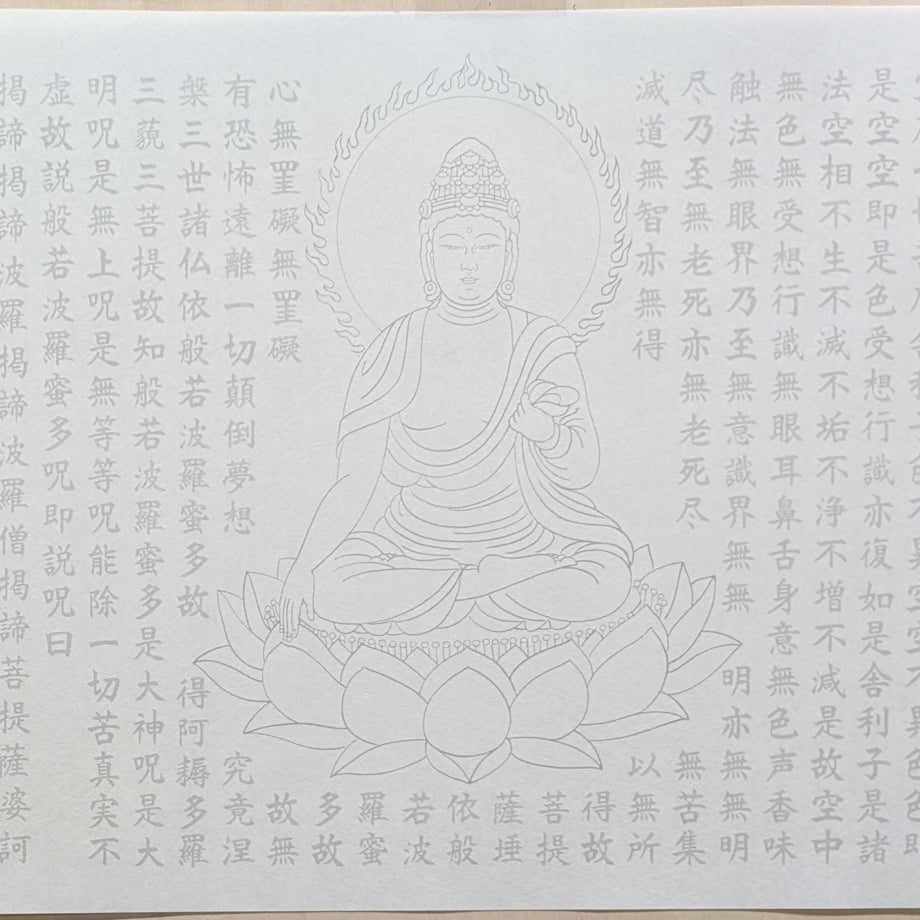 是空空即是色受想行識亦復如是舎利子是諸
法空相不生不滅不垢不浄不増不減是故空中
無色無受想行識無眼耳鼻舌身意無色声香味
触法無眼界乃至無意識界無無 明亦無無明
尽乃至無老死亦無老死尽 無苦集
滅道無智亦無得 以無所
得故
菩提
薩埵
依般
若波
羅蜜
多故
心無罣礙無罣礙 故無
有恐怖遠離一切顛倒夢想 究竟涅
槃三世諸仏依般若波羅蜜多故 得阿耨多羅
三藐三菩提故知般若波羅蜜多是大神呪是大
明呪是無上呪是無等等呪能除一切苦真実不
虚故説般若波羅蜜多呪即説呪曰
掲諦掲諦波羅掲諦波羅僧掲諦菩提薩婆訶